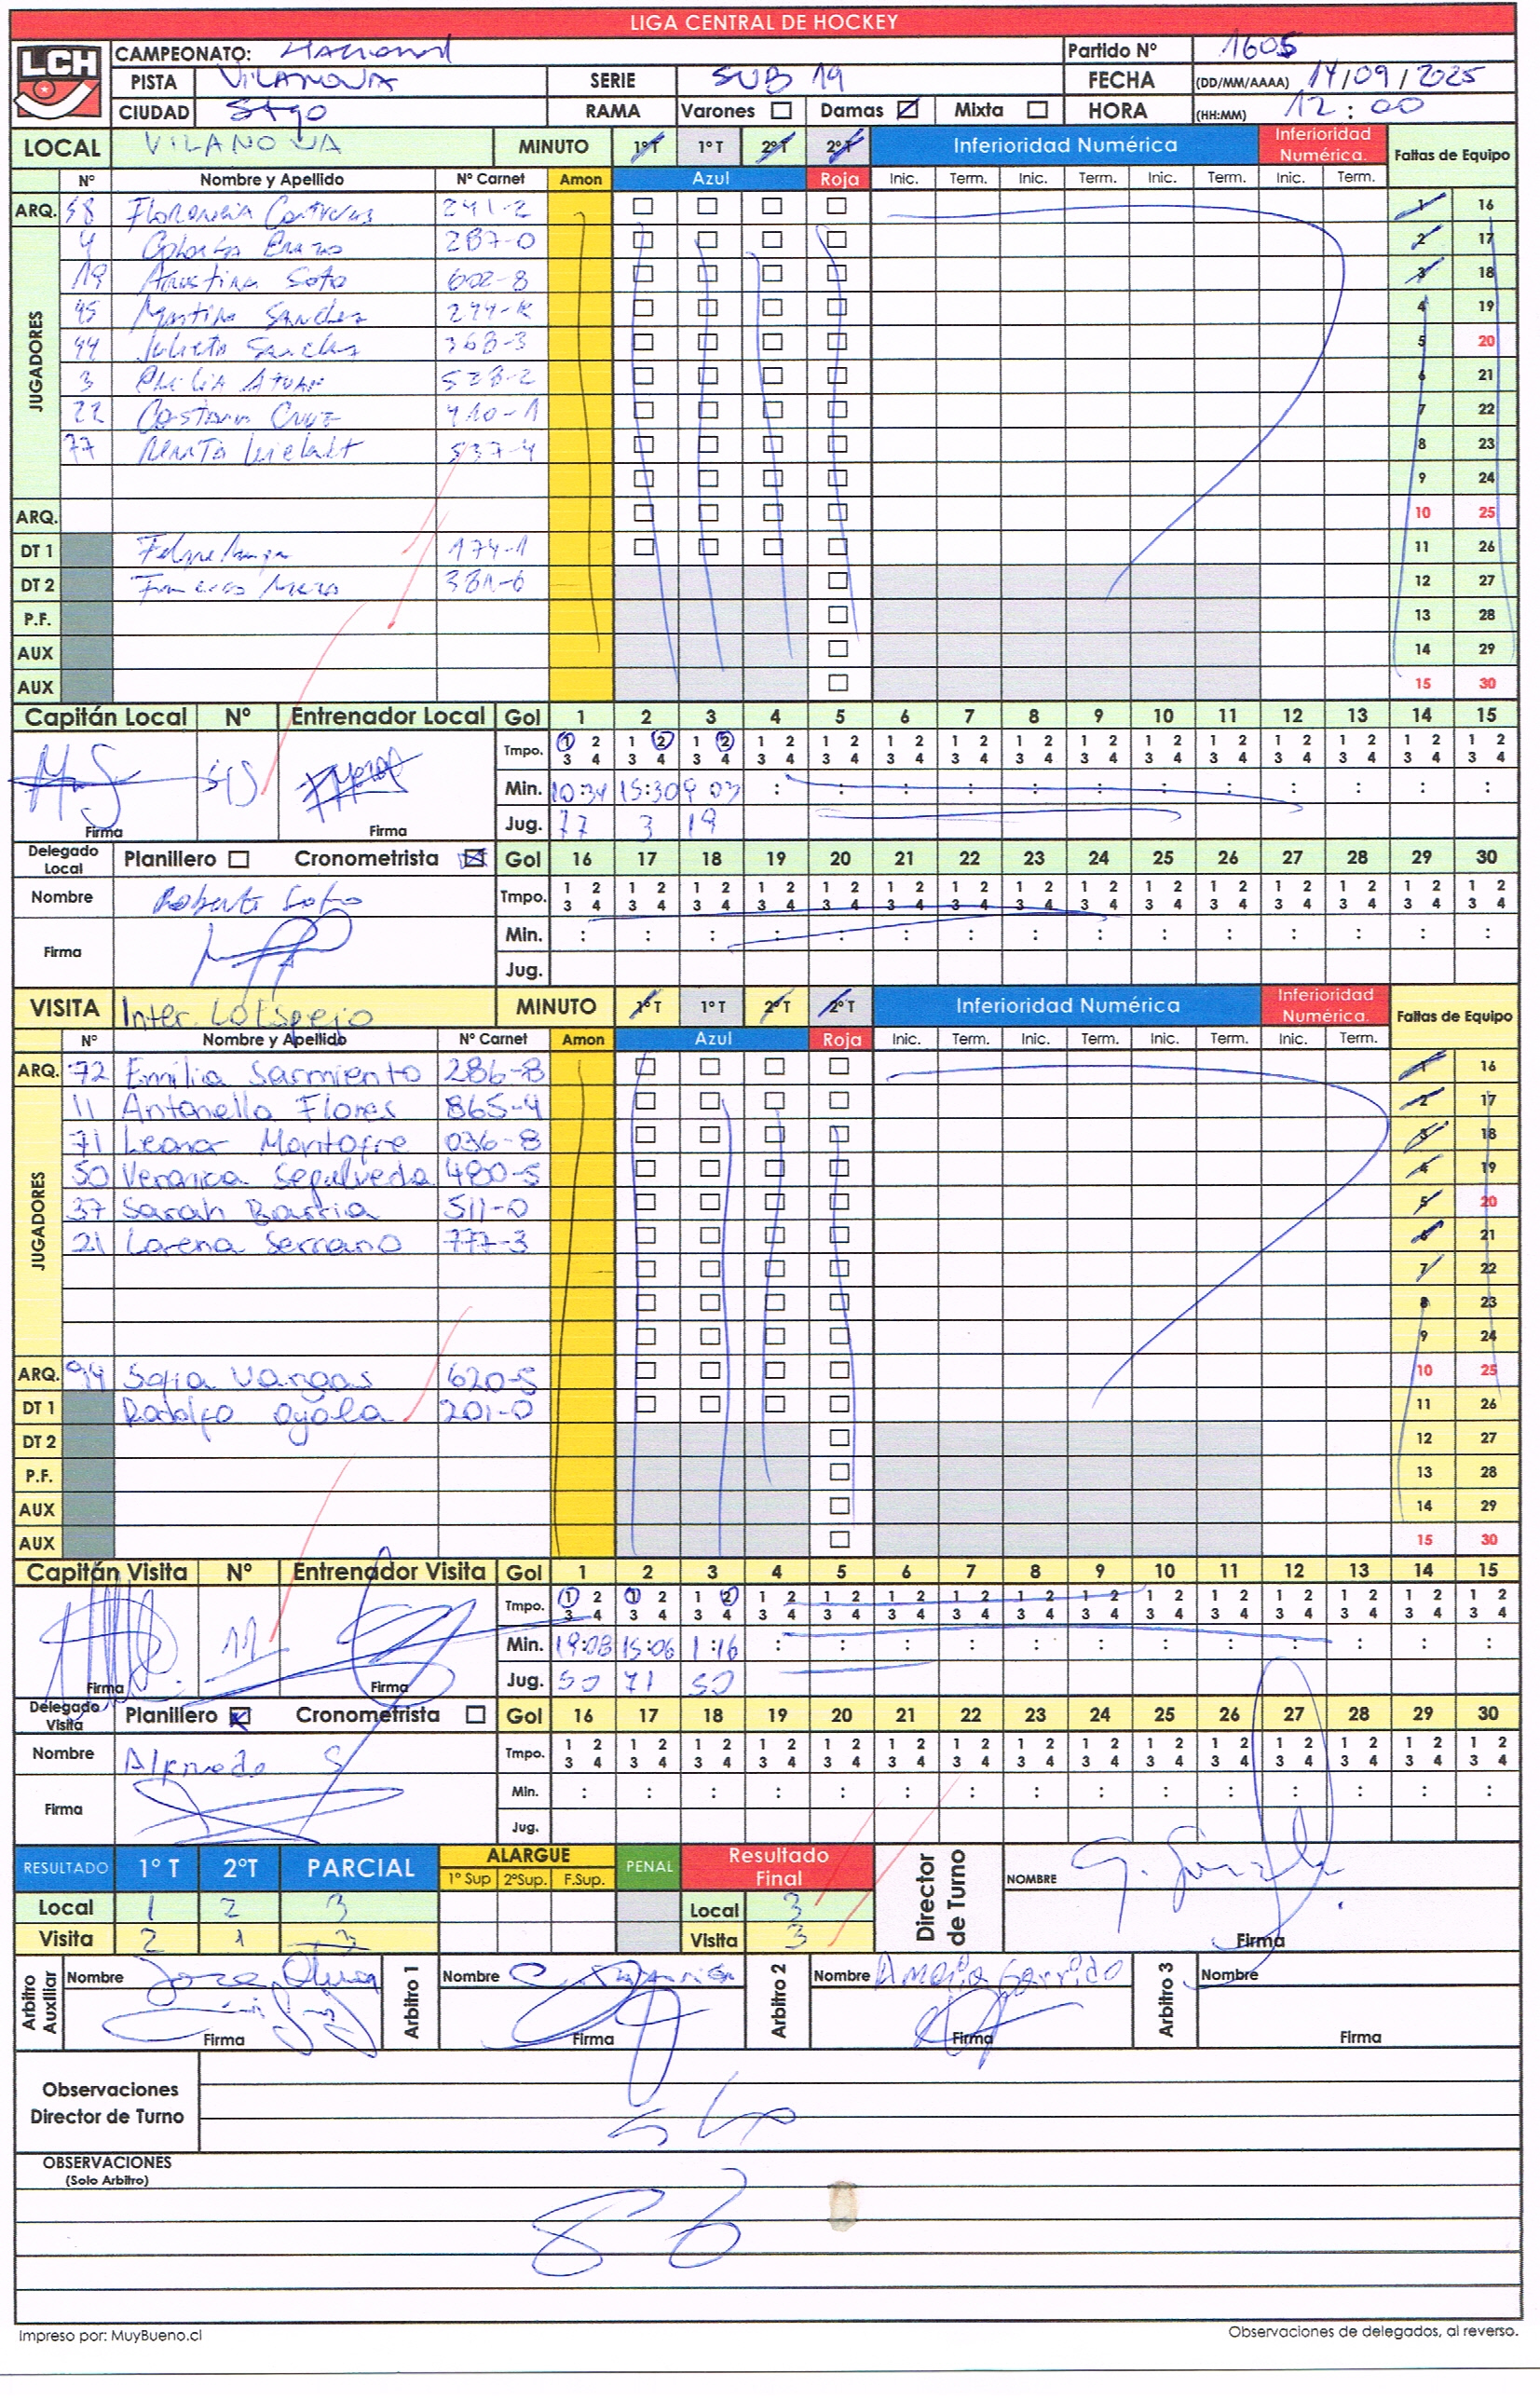 LIGA CENTRAL DE HOCKEY
LCH
CAMPEONATO: Nacional Partido Nº 1605
PISTA VILANOVA SERIE SUB 19 FECHA (DD/MM/AAAA) 14/09/2025
CIUDAD Stgo RAMA Varones Damas Mixta HORA (HH:MM) 12:00
LOCAL VILANOVA MINUTO 1ºT 1ºT 2ºT 2ºT Inferioridad Numérica Inferioridad Numérica. Faltas de Equipo
Nº Nombre y Apellido Nº Carnet Amon Azul Roja Inic. Term. Inic. Term. Inic. Term. Inic. Term.
ARQ. 58 Florencia Contreras 241-2 1 16
JUGADORES
4 287-0 2 17
19 Agustina Soto 602-8 3 18
45 Martina Sanchez 274-K 4 19
44 Julieta Sanchez 368-3 5 20
3 528-2 6 21
22 Cruz 410-1 7 22
77 Renata 537-4 8 23
9 24
ARQ. 10 25
DT 1 Felipe 174-1 11 26
DT 2 381-6 12 27
P.F. 13 28
AUX 14 29
AUX 15 30
Capitán Local Nº Entrenador Local Gol 1 2 3 4 5 6 7 8 9 10 11 12 13 14 15
Tmpo. 1 2 1 2 1 2 1 2 1 2 1 2 1 2 1 2 1 2 1 2 1 2 1 2 1 2 1 2 1 2
3 4 3 4 3 4 3 4 3 4 3 4 3 4 3 4 3 4 3 4 3 4 3 4 3 4 3 4 3 4
Min. 10:34 15:30 9 03 : : : : : : : : : : : :
Firma Firma Jug. 77 3 19
Delegado Local Planillero Cronometrista Gol 16 17 18 19 20 21 22 23 24 25 26 27 28 29 30
Nombre Roberto Soto Tmpo. 1 2 1 2 1 2 1 2 1 2 1 2 1 2 1 2 1 2 1 2 1 2 1 2 1 2 1 2 1 2
3 4 3 4 3 4 3 4 3 4 3 4 3 4 3 4 3 4 3 4 3 4 3 4 3 4 3 4 3 4
Firma Min. : : : : : : : : : : : : : : :
Jug.
VISITA Inter. Lo Espejo MINUTO 1ºT 1ºT 2ºT 2ºT Inferioridad Numérica Inferioridad Numérica. Faltas de Equipo
Nº Nombre y Apellido Nº Carnet Amon Azul Roja Inic. Term. Inic. Term. Inic. Term. Inic. Term.
ARQ. 72 Emilia Sarmiento 286-8 1 16
JUGADORES
11 Antonella Flores 865-4 2 17
71 Leonor Montofre 036-8 3 18
50 Veronica Sepulveda 480-5 4 19
37 Sarah Barria 511-0 5 20
21 Lorena Serrano 777-3 6 21
7 22
8 23
9 24
ARQ. 94 Sofia Vargas 620-5 10 25
DT 1 Rodolfo Ayala 201-0 11 26
DT 2 12 27
P.F. 13 28
AUX 14 29
AUX 15 30
Capitán Visita Nº Entrenador Visita Gol 1 2 3 4 5 6 7 8 9 10 11 12 13 14 15
Tmpo. 1 2 1 2 1 2 1 2 1 2 1 2 1 2 1 2 1 2 1 2 1 2 1 2 1 2 1 2 1 2
3 4 3 4 3 4 3 4 3 4 3 4 3 4 3 4 3 4 3 4 3 4 3 4 3 4 3 4 3 4
11 Min. 19:08 15:06 1:16 : : : : : : : : : : : :
Firma Firma Jug. 50 71 50
Delegado Visita Planillero Cronometrista Gol 16 17 18 19 20 21 22 23 24 25 26 27 28 29 30
Nombre S Tmpo. 1 2 1 2 1 2 1 2 1 2 1 2 1 2 1 2 1 2 1 2 1 2 1 2 1 2 1 2 1 2
3 4 3 4 3 4 3 4 3 4 3 4 3 4 3 4 3 4 3 4 3 4 3 4 3 4 3 4 3 4
Firma Min. : : : : : : : : : : : : : : :
Jug.
RESULTADO 1º T 2ºT PARCIAL ALARGUE 1º Sup 2ºSup. F.Sup. PENAL Resultado Final Director de Turno NOMBRE
Local 1 2 3 Local 3
Visita 2 1 3 Visita 3 Firma
Arbitro Auxiliar Nombre Arbitro 1 Nombre Arbitro 2 Nombre Amelia Garrido Arbitro 3 Nombre
Firma Firma Firma Firma
Observaciones
Director de Turno
OBSERVACIONES
(Solo Arbitro)
Impreso por: MuyBueno.cl Observaciones de delegados, al reverso.